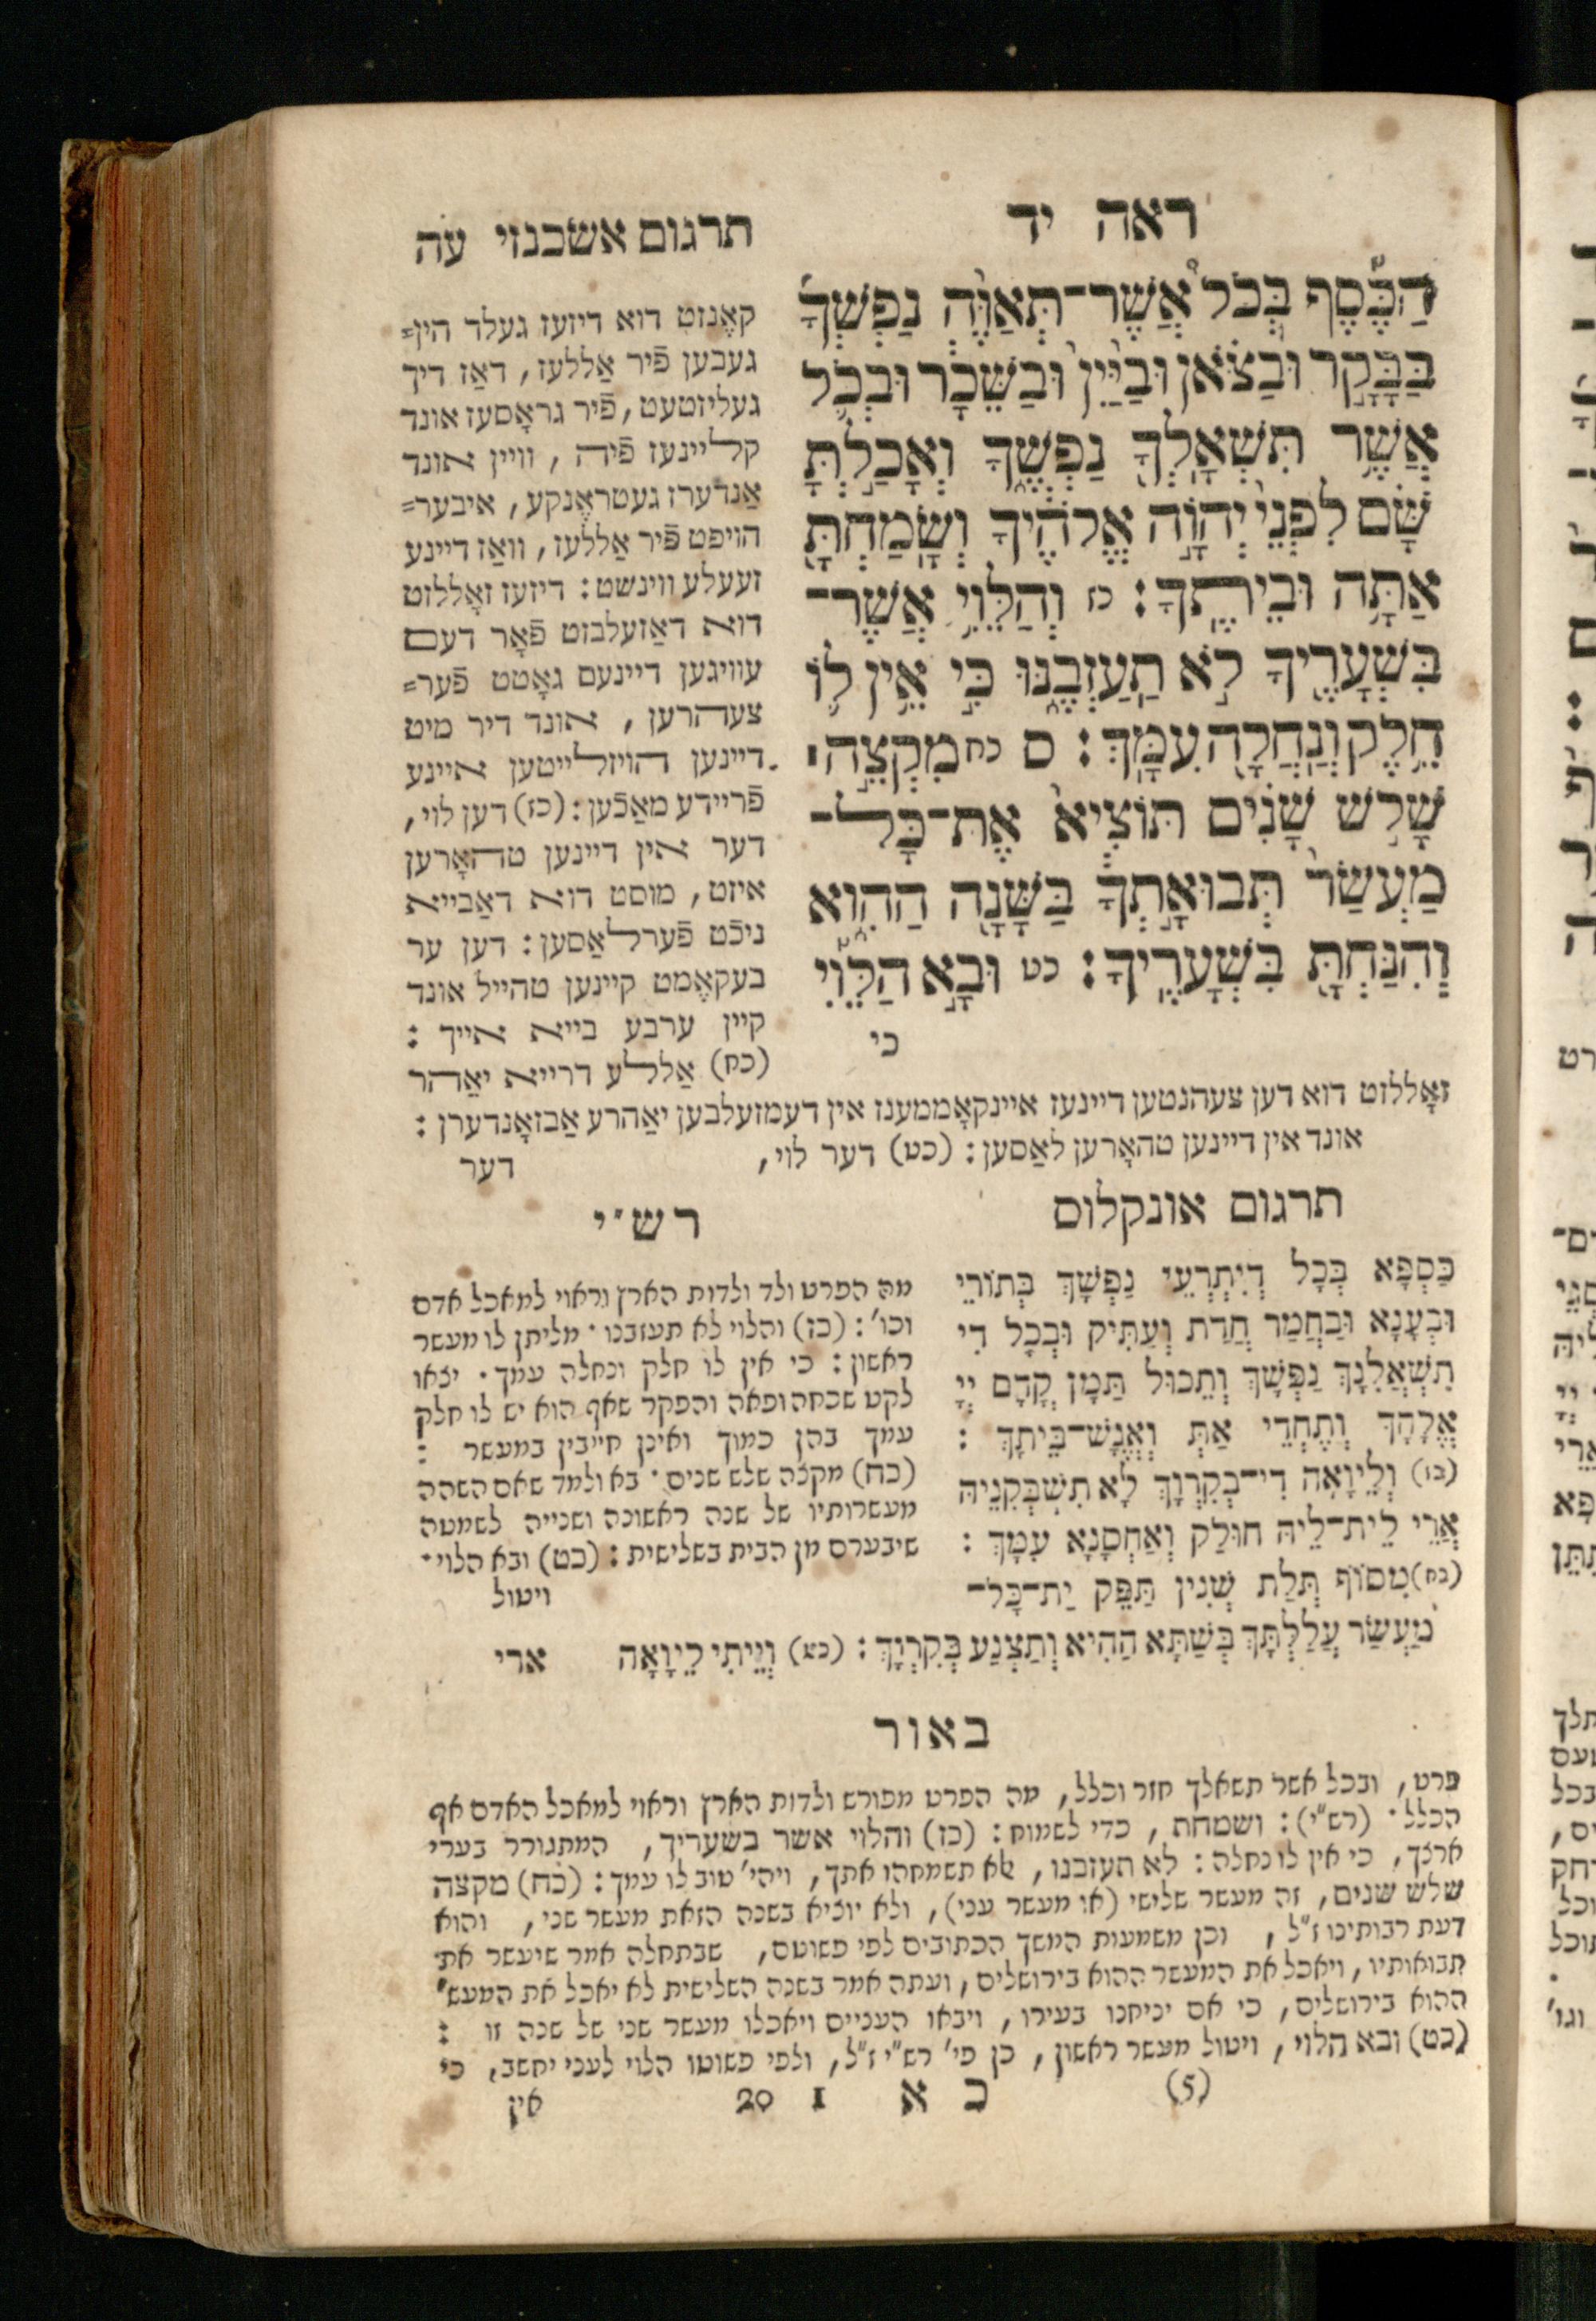 ראה יד
הַכֶּ֡סֶף בְּכֹל֩ אֲשֶׁר־תְּאַוֶּ֨ה נַפְשְׁךָ֜
בַּבָּקָ֣ר וּבַצֹּ֗אן וּבַיַּ֙יִן֙ וּבַשֵּׁכָ֔ר וּבְכֹ֛ל
אֲשֶׁ֥ר תִּֽשְׁאָלְךָ֖ נַפְשֶׁ֑ךָ וְאָכַ֣לְתָּ
שָּׁ֗ם לִפְנֵי֙ יְהוָ֣ה אֱלֹהֶ֔יךָ וְשָׂמַחְתָּ֖
אַתָּ֥ה וּבֵיתֶֽךָ׃ כז וְהַלֵּוִ֥י אֲשֶׁר־
בִּשְׁעָרֶ֖יךָ לֹ֣א תַֽעַזְבֶ֑נּוּ כִּ֣י אֵ֥ין ל֛וֹ
חֵ֥לֶק וְנַחֲלָ֖ה עִמָּֽךְ׃ ס כח מִקְצֵ֣ה ׀
שָׁלֹ֣שׁ שָׁנִ֗ים תּוֹצִיא֙ אֶת־כָּל־
מַעְשַׂר֙ תְּבוּאָ֣תְךָ֔ בַּשָּׁנָ֖ה הַהִ֑וא
וְהִנַּחְתָּ֖ בִּשְׁעָרֶֽיךָ׃ כט וּבָ֣א הַלֵּוִ֡י
כי
תרגום אשכנזי עה
קאָנזט דוא דיזעז געלד הין=
געבען פֿיר אַללעז, דאַז דיך
געליזטעט, פֿיר גראָסעז אונד
קליינעז פֿיה, וויין אונד
אַנדערז געטראֶנקע, איבער=
הויפט פֿיר אַללעז, וואַז דיינע
זעעלע ווינשט: דיזעז זאָללזט
דוא דאַזעלבזט פֿאָר דעם
עוויגען דיינעם גאָטט פֿער=
צעהרען, אונד דיר מיט
דיינען הויזלייטען איינע
פֿריידע מאַכֿען: (כז) דען לוי,
דער אין דיינען טהאָרען
איזט, מוסט דוא דאַבייא
ניכֿט פֿערלאַסען: דען ער
בעקאֶמט קיינען טהייל אונד
קיין ערבע בייא אייך:
(כח) אַללע דרייא יאַהר
זאָללזט דוא דען צעהנטען דיינעז איינקאָממענז אין דעמזעלבען יאַהרע אַבזאָנדערן:
אונד אין דיינען טהאָרען לאַסען: (כט) דער לוי,
דער
תרגום אונקלוס
כַּסְפָּא בְּכָל דְּיִתְרְעֵי נַפְשָׁךְ בְּתוֹרֵי
וּבְעָנָא וּבַחֲמַר חֲדַת וְעַתִּיק וּבְכָל דִי
תִשְׁאֲלִנָךְ נַפְשָׁךְ וְתֵכוּל תַּמָן קֳדָם יְיָ
אֱלָהָךְ וְתֶחְדֵי אַתְּ וֶאֱנָשׁ־בֵּיתָךְ:
(כז) וְלֵיוָאָה דִי־בְקִרְוָךְ לָא תִשְׁבְּקִנֵיהּ
אֲרֵי לֵית־לֵיהּ חוּלַק וְאַחְסָנָא עִמָּךְ:
(כח) מִסּוֹף תְּלַת שְׁנִין תַּפֵּק יַת־כָּל־
מַעְשַׂר עֲלַלְתָּךְ בְּשַׁתָּא הַהִיא וְתַצְנַע בְּקִרְוָךְ: (כט) וְיֵיתֵי לֵיוָאָה
ארי
רש״י
מה הפרט ולד ולדות הארץ וראוי למאכל אדם
וכו׳: (כז) והלוי לא תעזבנו · מליתן לו מעשר
ראשון: כי אין לו חלק ונחלה עמך · יצאו
לקט שכחה ופאה והפקר שאף הוא יש לו חלק
עמך בהן כמוך ואינן חייבין במעשר:
(כח) מקצה שלש שנים · בא ולמד שאם השהה
מעשרותיו של שנה ראשונה ושנייה לשמטה
שיבערם מן הבית בשלישית: (כט) ובא הלוי ·
ויטול
באור
פרט, ובכל אשר תשאלך חזר וכלל, מה הפרט מפורש ולדות הארץ וראוי למאכל האדם אף
הכלל · (רש״י): ושמחת, כדי לשמוח: (כז) והלוי אשר בשעריך, המתגורר בערי
ארצך, כי אין לו נחלה: לא תעזבנו, שלא תשמחהו אתך, ויהי׳ טוב לו עמך: (כח) מקצה
שלש שנים, זה מעשר שלישי (או מעשר עני), ולא יוציא בשנה הזאת מעשר שני, והוא
דעת רבותינו ז״ל, וכן משמעות המשך הכתובים לפי פשוטם, שבתחלה אמר שיעשר את
תבואותיו, ויאכל את המעשר ההוא בירושלים, ועתה אמר בשנה השלישית לא יאכל את המעש׳
ההוא בירושלים, כי אם יניחנו בעירו, ויבאו העניים ויאכלו מעשר שני של שנה זו:
(כט) ובא הלוי, ויטול מעשר ראשון, כן פי׳ רש״י ז״ל, ולפי פשוטו הלוי לעני יחשב, כי
(5) כ א 1 20 אין